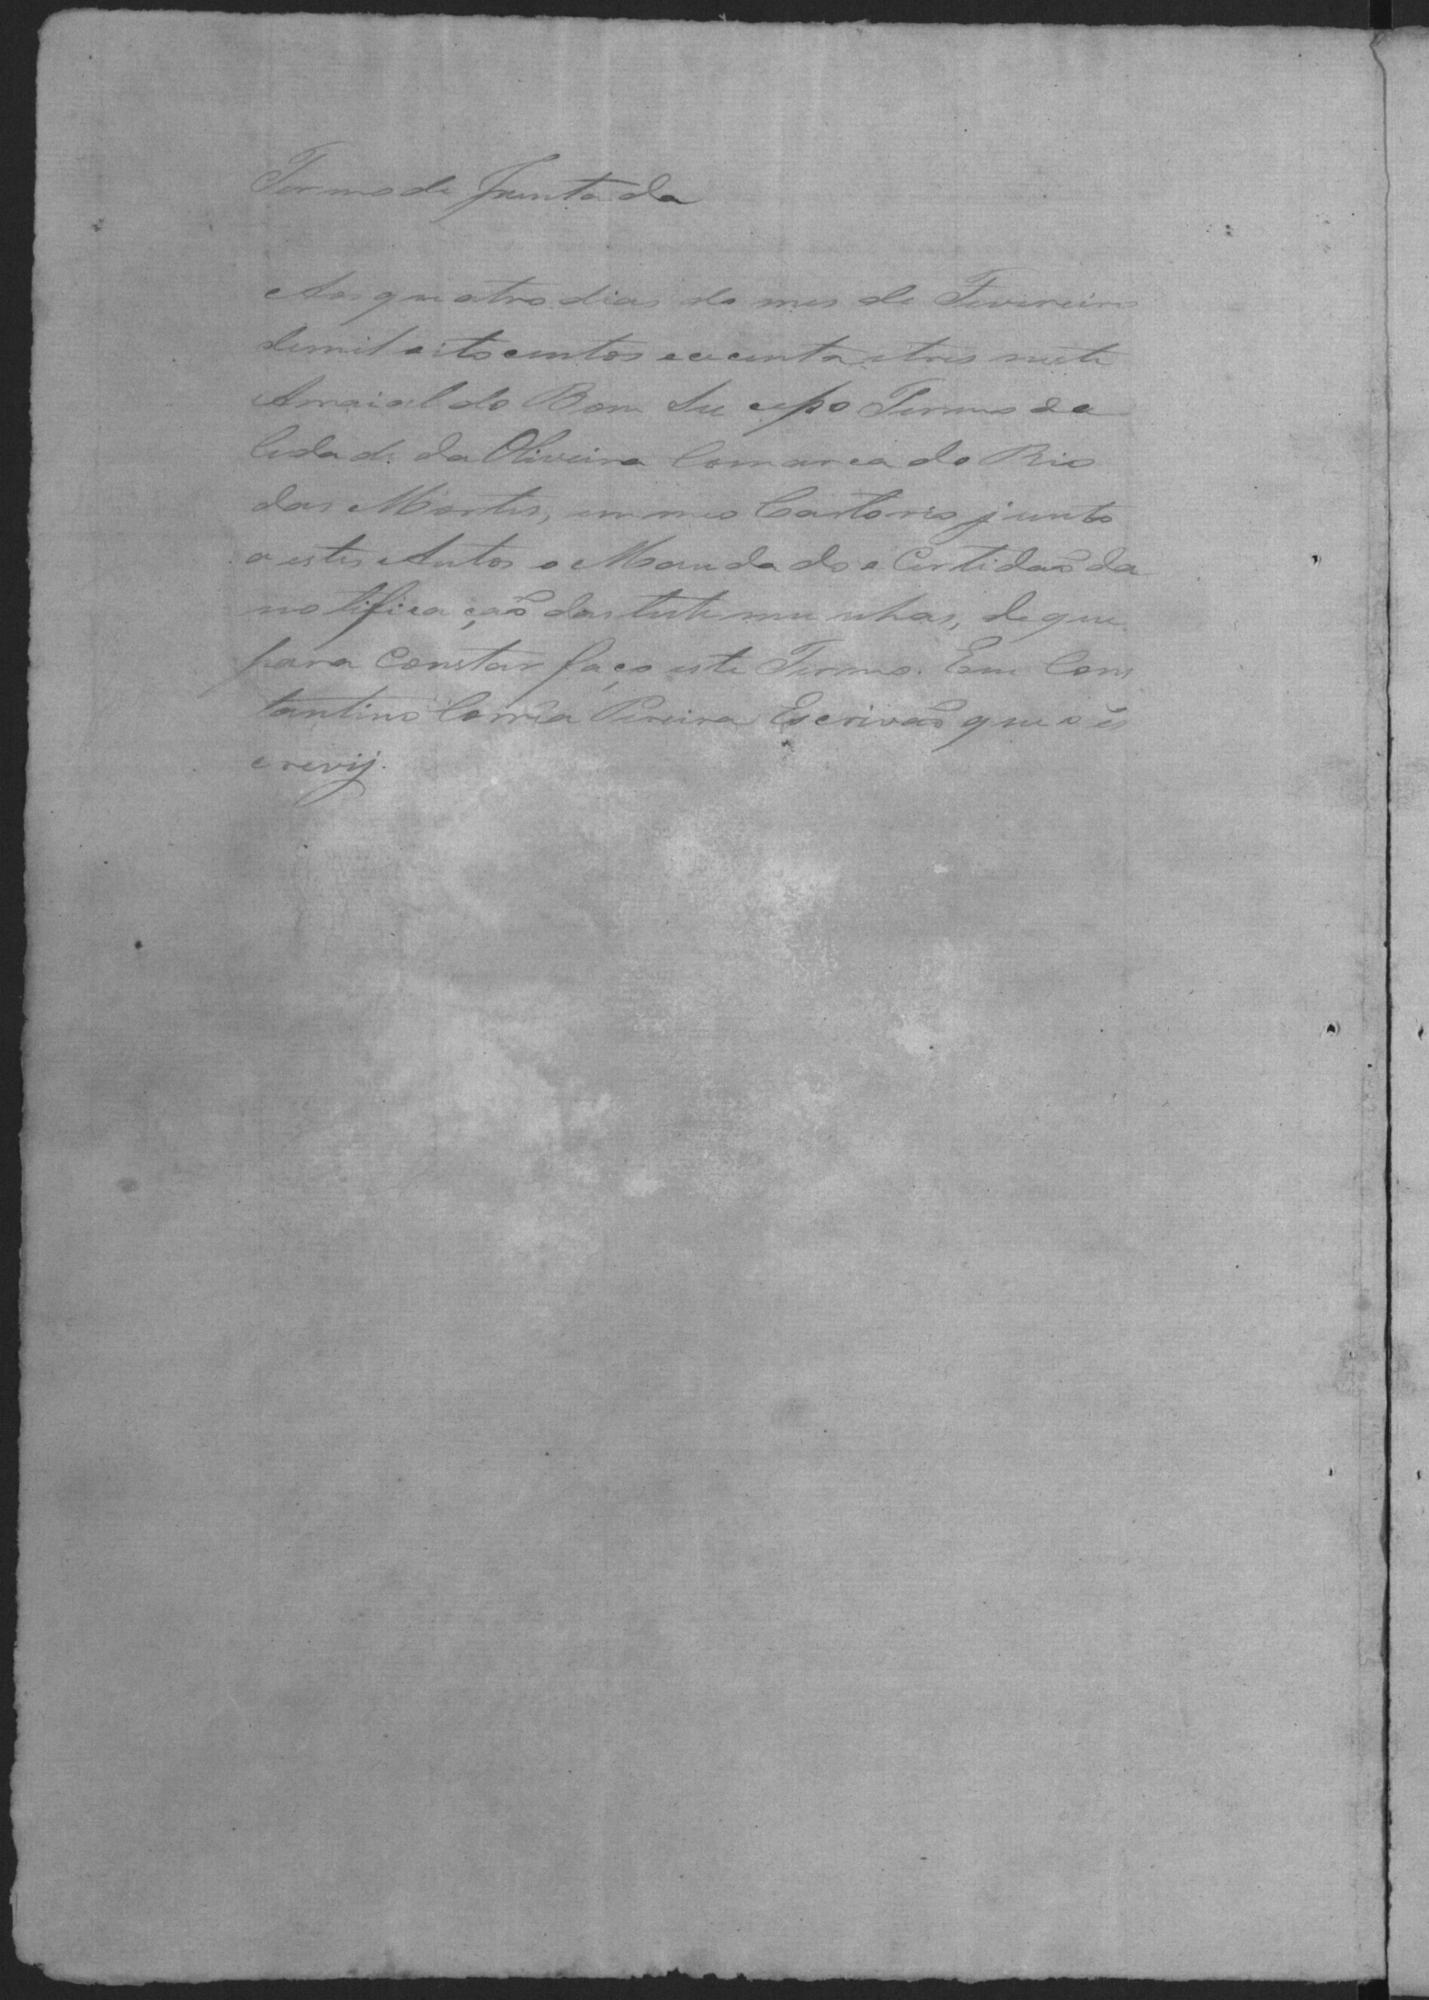 Termo de Juntada
Aos quatro dias do mes de Fevereiro
de mil oito centos e cecenta e tres neste
Arraial do Bom Sucesso Termo da
Cidade da Oliveira Comarca do Rio
das Mortes, em meo Cartorio junto
a estes Autos o Mandado e Certidaõ da
notificaçaõ das testemunhas, de que
para Constar faço este Termo. Eu Cons
tantino Corrêa Pereira Escrivaõ que o es
crevij.